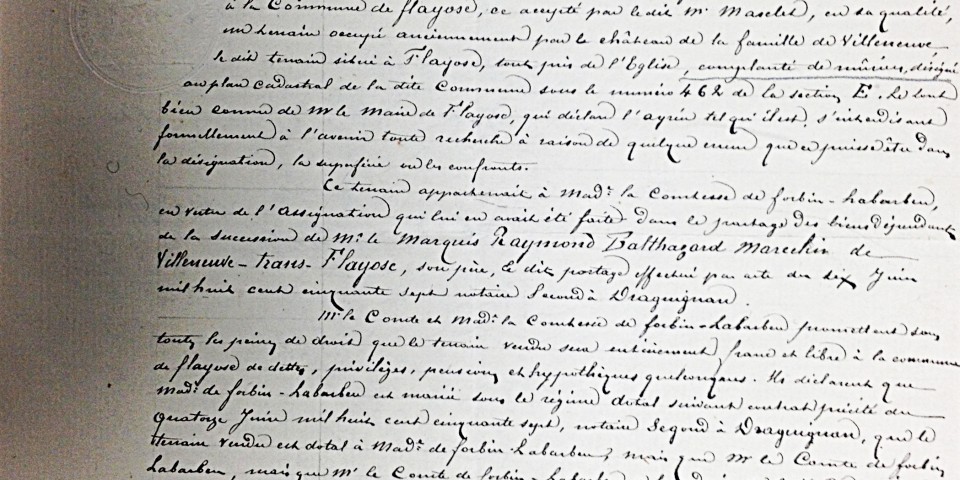 à la Commune de flayosc, ce accepté par le dit Mr. Maselet, en sa qualité,
un terrain occupé anciennement par le château de la famille de Villeneuve,
le dit terrain situé à Flayosc, tout près de l'Eglise, complanté de mûriers, désigné
au plan cadastral de la dite Commune sous le numéro 462 de la section E. Le tout
bien connu de Mr le Maire de Flayosc, qui déclare l'agréer tel qu'il est, s'interdisant
formellement à l'avenir toute recherche à raison de quelque erreur que ce puisse être dans
la désignation, la superficie ou les confronts.
Ce terrain appartenait à Mad.e la Comtesse de forbin-Labarben,
en vertu de l'assignation qui lui en avait été faite dans le partage des biens dépendants
de la succession de Mr. le Marquis Raymond Balthazard Marcelin de
Villeneuve-trans-Flayosc, son père, le dit partage effectué par acte du dix Juin
mil huit cent cinquante sept notaire Second à Draguignan.
Mr. le Comte et Mad.e la Comtesse de forbin-Labarben promettent sous
toutes les peines de droit que le terrain vendu sera entièrement franc et libre à la commune
de flayosc de dettes, privilèges, pensions et hypothèques quelconques. Ils déclarent que
Mad.e de forbin-Labarben est mariée sous le régime dotal suivant contrat précité du
quatorze Juin mil huit cent cinquante sept, notaire Segond à Draguignan, que le
terrain vendu est dotal à Mad.e de forbin-Labarben, mais que Mr le Comte de forbin
Labarben, mais que Mr le Comte de forbin-Labarben